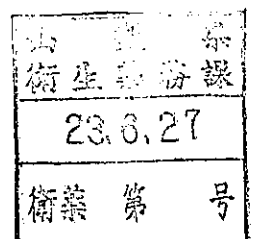 衛生薬務課
23.6.27
衛薬 第 号